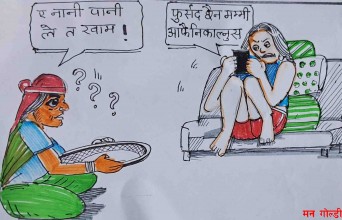 ए नानी पानी
ले त खाम !
? ? ?
फुर्सद छैन मम्मी
आफै निकाल्नुस
मन गोल्डी